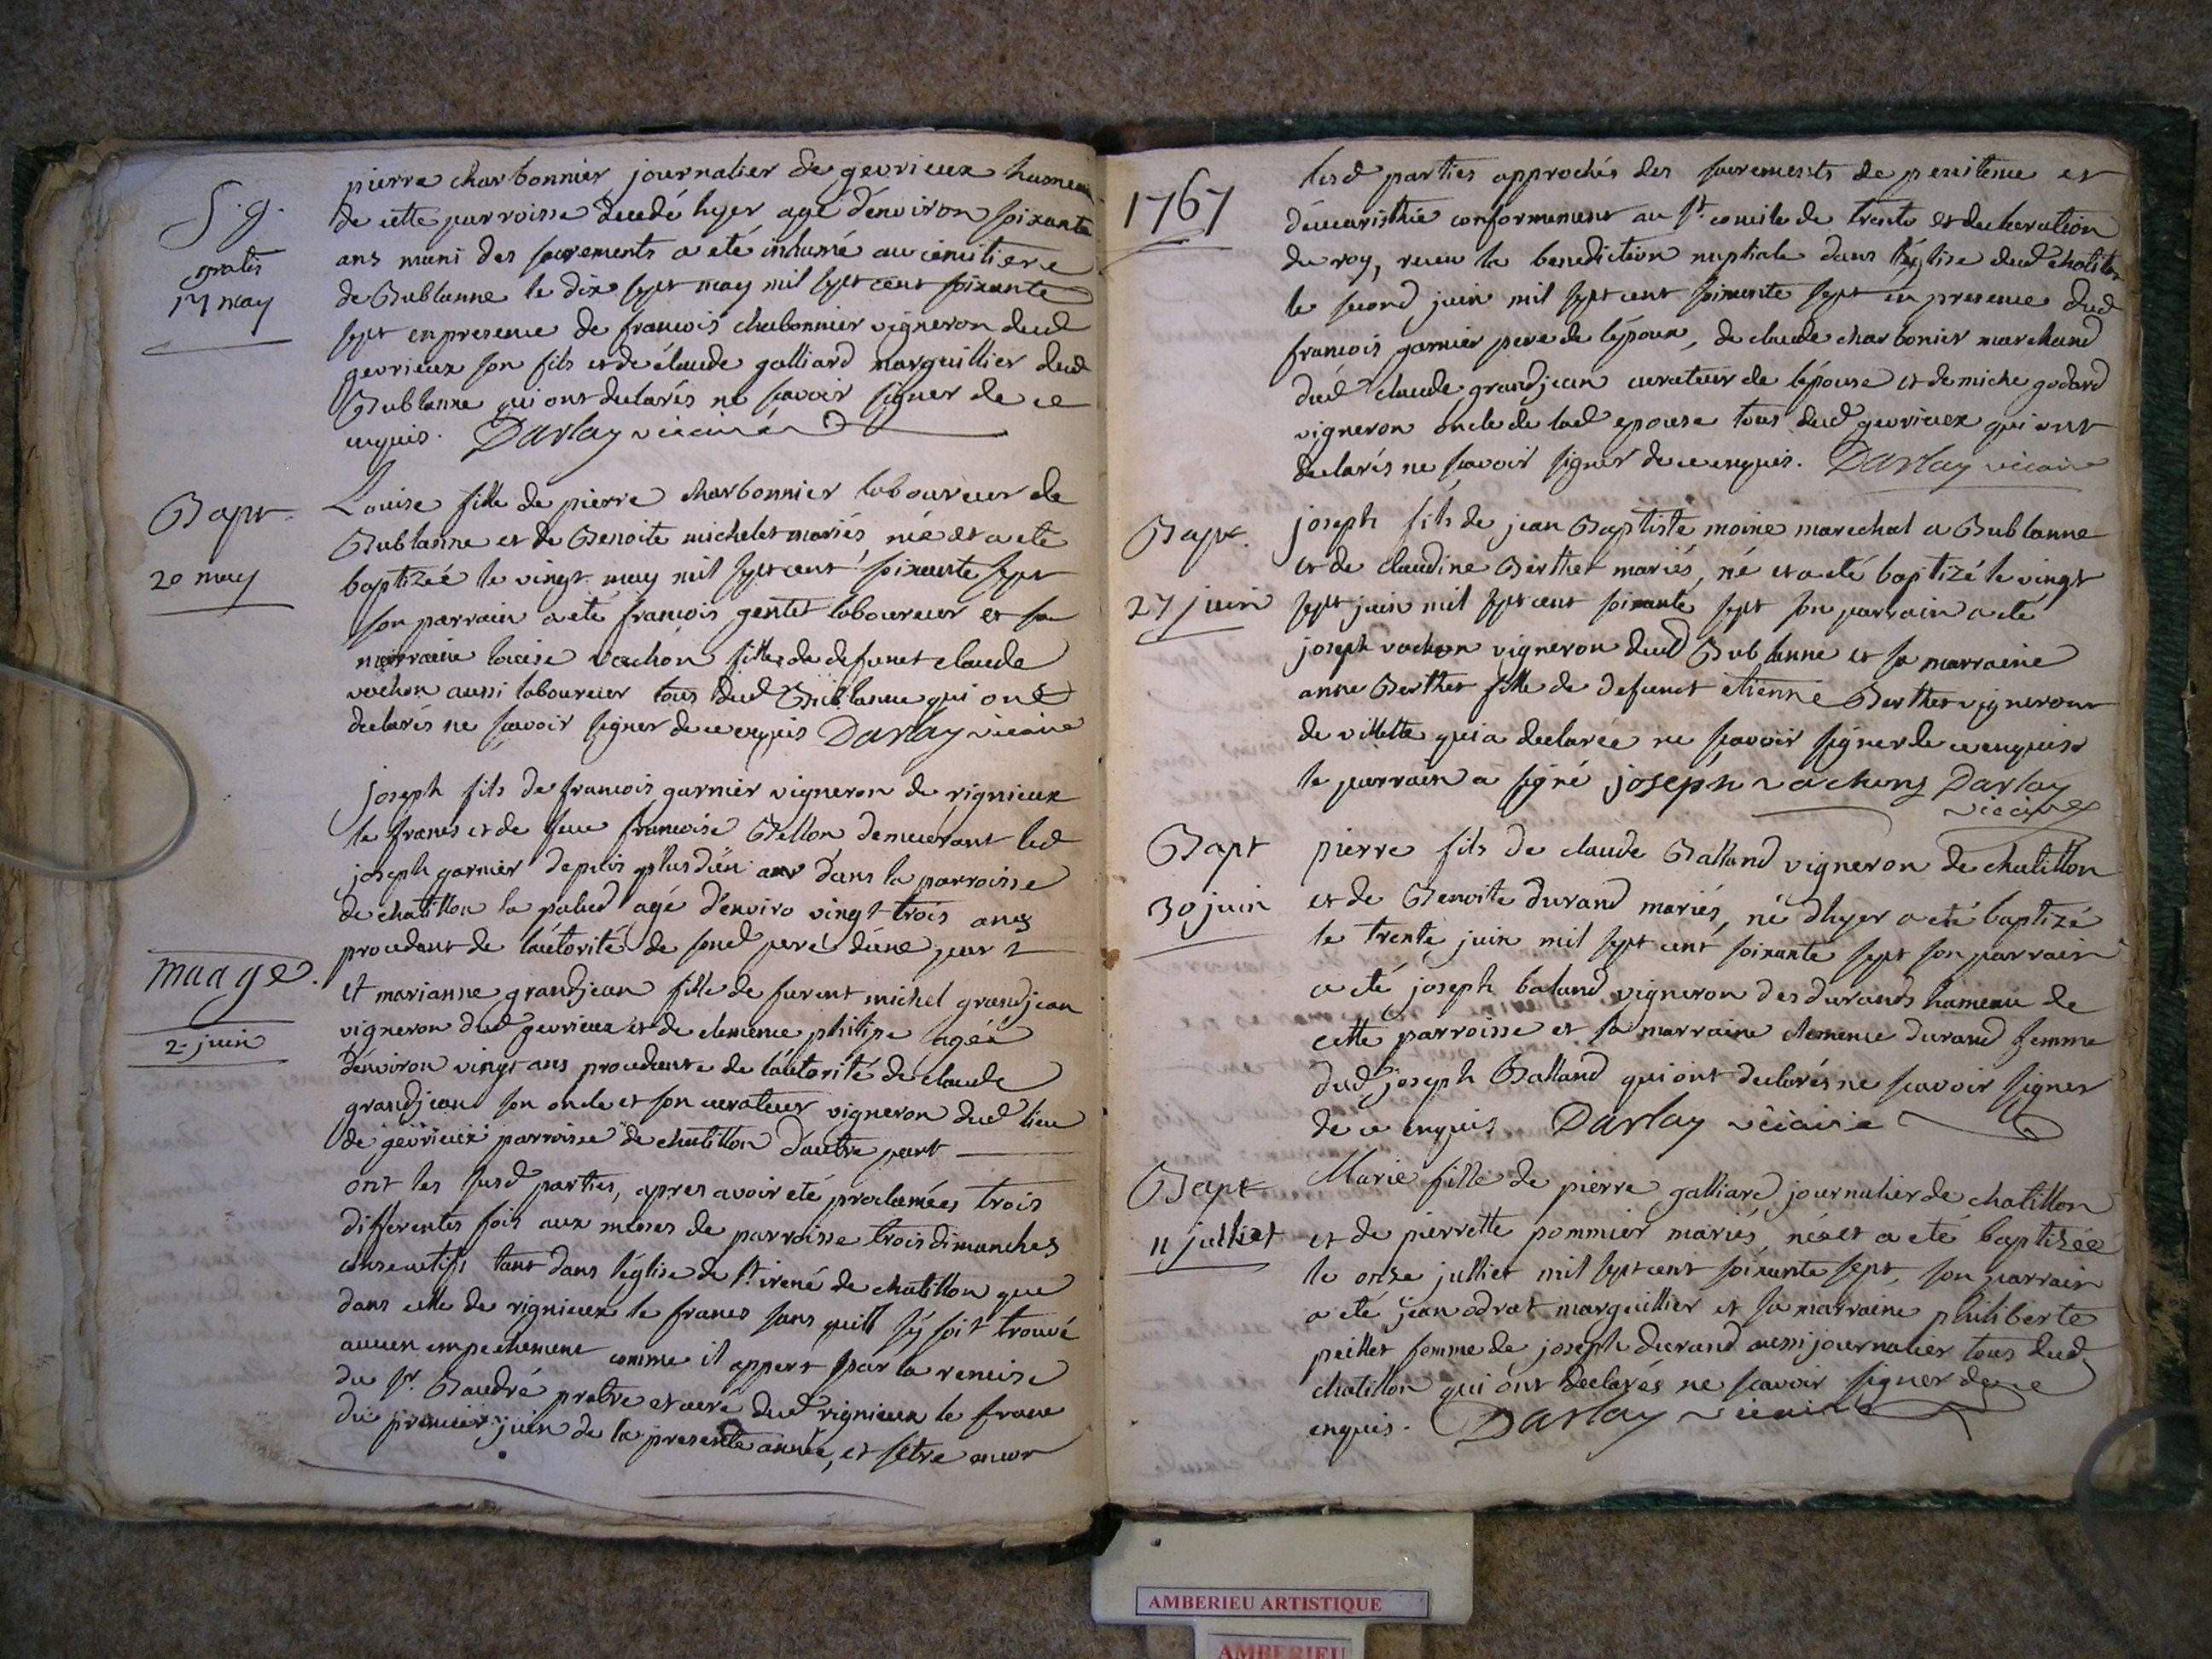 S. g.
gratis
17 may
pierre charbonnier journalier de gevrieux hameau
de cette parroisse decedé hyer agé d'environ soixante
ans muni des sacrements a eté inhumé au cimitiere
de Bublanne le dix sept may mil sept cent soixante
sept en presence de francois charbonnier vigneron dud
gevrieux son fils et de claude galliard marguillier dud
Bublanne qui ont declarés ne scavoir signer de ce
enquis. Darlay vicaire
Bapt.
20 may
Louise fille de pierre charbonnier laboureur de
Bublanne et de Benoite michelet mariés née et a eté
baptizée le vingt may mil sept cent soixante sept
son parrain a eté francois gentet laboureur et sa
marraine louise vachon fille de defunct claude
vachon aussi laboureur tous dud Bublanne qui ont
declarés ne scavoir signer de ce enquis Darlay vicaire
maage.
2 juin
joseph fils de francois garnier vigneron de rignieux
le francs et de feue francoise Bellon demeurant led
joseph garnier depuis plus d'un an dans la parroisse
de chatillon la palud agé d'enviro vingt-trois ans
procedant de l'autorité de sond pere d'une part
et marianne grandjean fille de furent michel grandjean
vigneron dud gevrieux et de clemence philipe agée
d'environ vingt ans procedante de l'autorité de claude
grandjean son oncle et son curateur vigneron dud lieu
de gevrieux parroisse de chatillon d'autre part
ont les susd parties, apres avoir eté proclamées trois
differentes fois aux messes de parroisse trois dimanches
consecutifs tant dans l'église de st irené de chatillon que
dans celle de rignieux le francs sans quill sy soit trouvé
aucun empechement comme il appert par la remise
du sr. Baudré pretre et curé dud rignieux le franc
du premier juin de la presente année, et s'etre
1767
lesd parties approchés des sacrements de penitence et
d'eucaristhie conformement au st. concile de trente et declaration
du roy, receu la benediction nuptiale dans l'église dud chatillon
le second juin mil sept cent soixante sept en presence dud
francois garnier pere de l'époux, de claude charbonier marchand
dud claude grandjean curateur de l'épouse et de miche godard
vigneron oncle de lad epouse tous dud gevrieux qui ont
declarés ne scavoir signer de ce enquis. Darlay vicaire
Bapt.
27 juin
joseph fils de jean Baptiste moine marechal a Bublanne
et de claudine Berthet mariés, né et a eté baptizé le vingt
sept juin mil sept cent soixante sept son parrain a eté
joseph vachon vigneron dud Bublanne et sa marraine
anne Berthet fille de defunct etienne Berthet vigneron
de villette qui a declarée ne scavoir signer de ce enquise
le parrain a signé joseph vachon Darlay
vicaire
Bapt
30 juin
pierre fils de claude Balland vigneron de chatillon
et de Benoite durand mariés, né d'hyer a eté baptizé
le trente juin mil sept cent soixante sept son parrain
a eté joseph baland vigneron des durands hameau de
cette parroisse et sa marraine clemence durand femme
dud joseph Balland qui ont declarés ne scavoir signer
de ce enquis Darlay vicaire
Bapt
11 julliet
Marie fille de pierre galliard journalier de chatillon
et de pierrette pommier mariés, née et a eté baptisée
le onze julliet mil sept cent soixante sept, son parrain
a eté jean odrat marguillier et sa marraine philiberte
peillet femme de joseph durand aussi journalier tous dud
chatillon qui ont declarés ne scavoir signer de ce
enquis. Darlay vicaire
AMBERIEU ARTISTIQUE
AMBERIEU